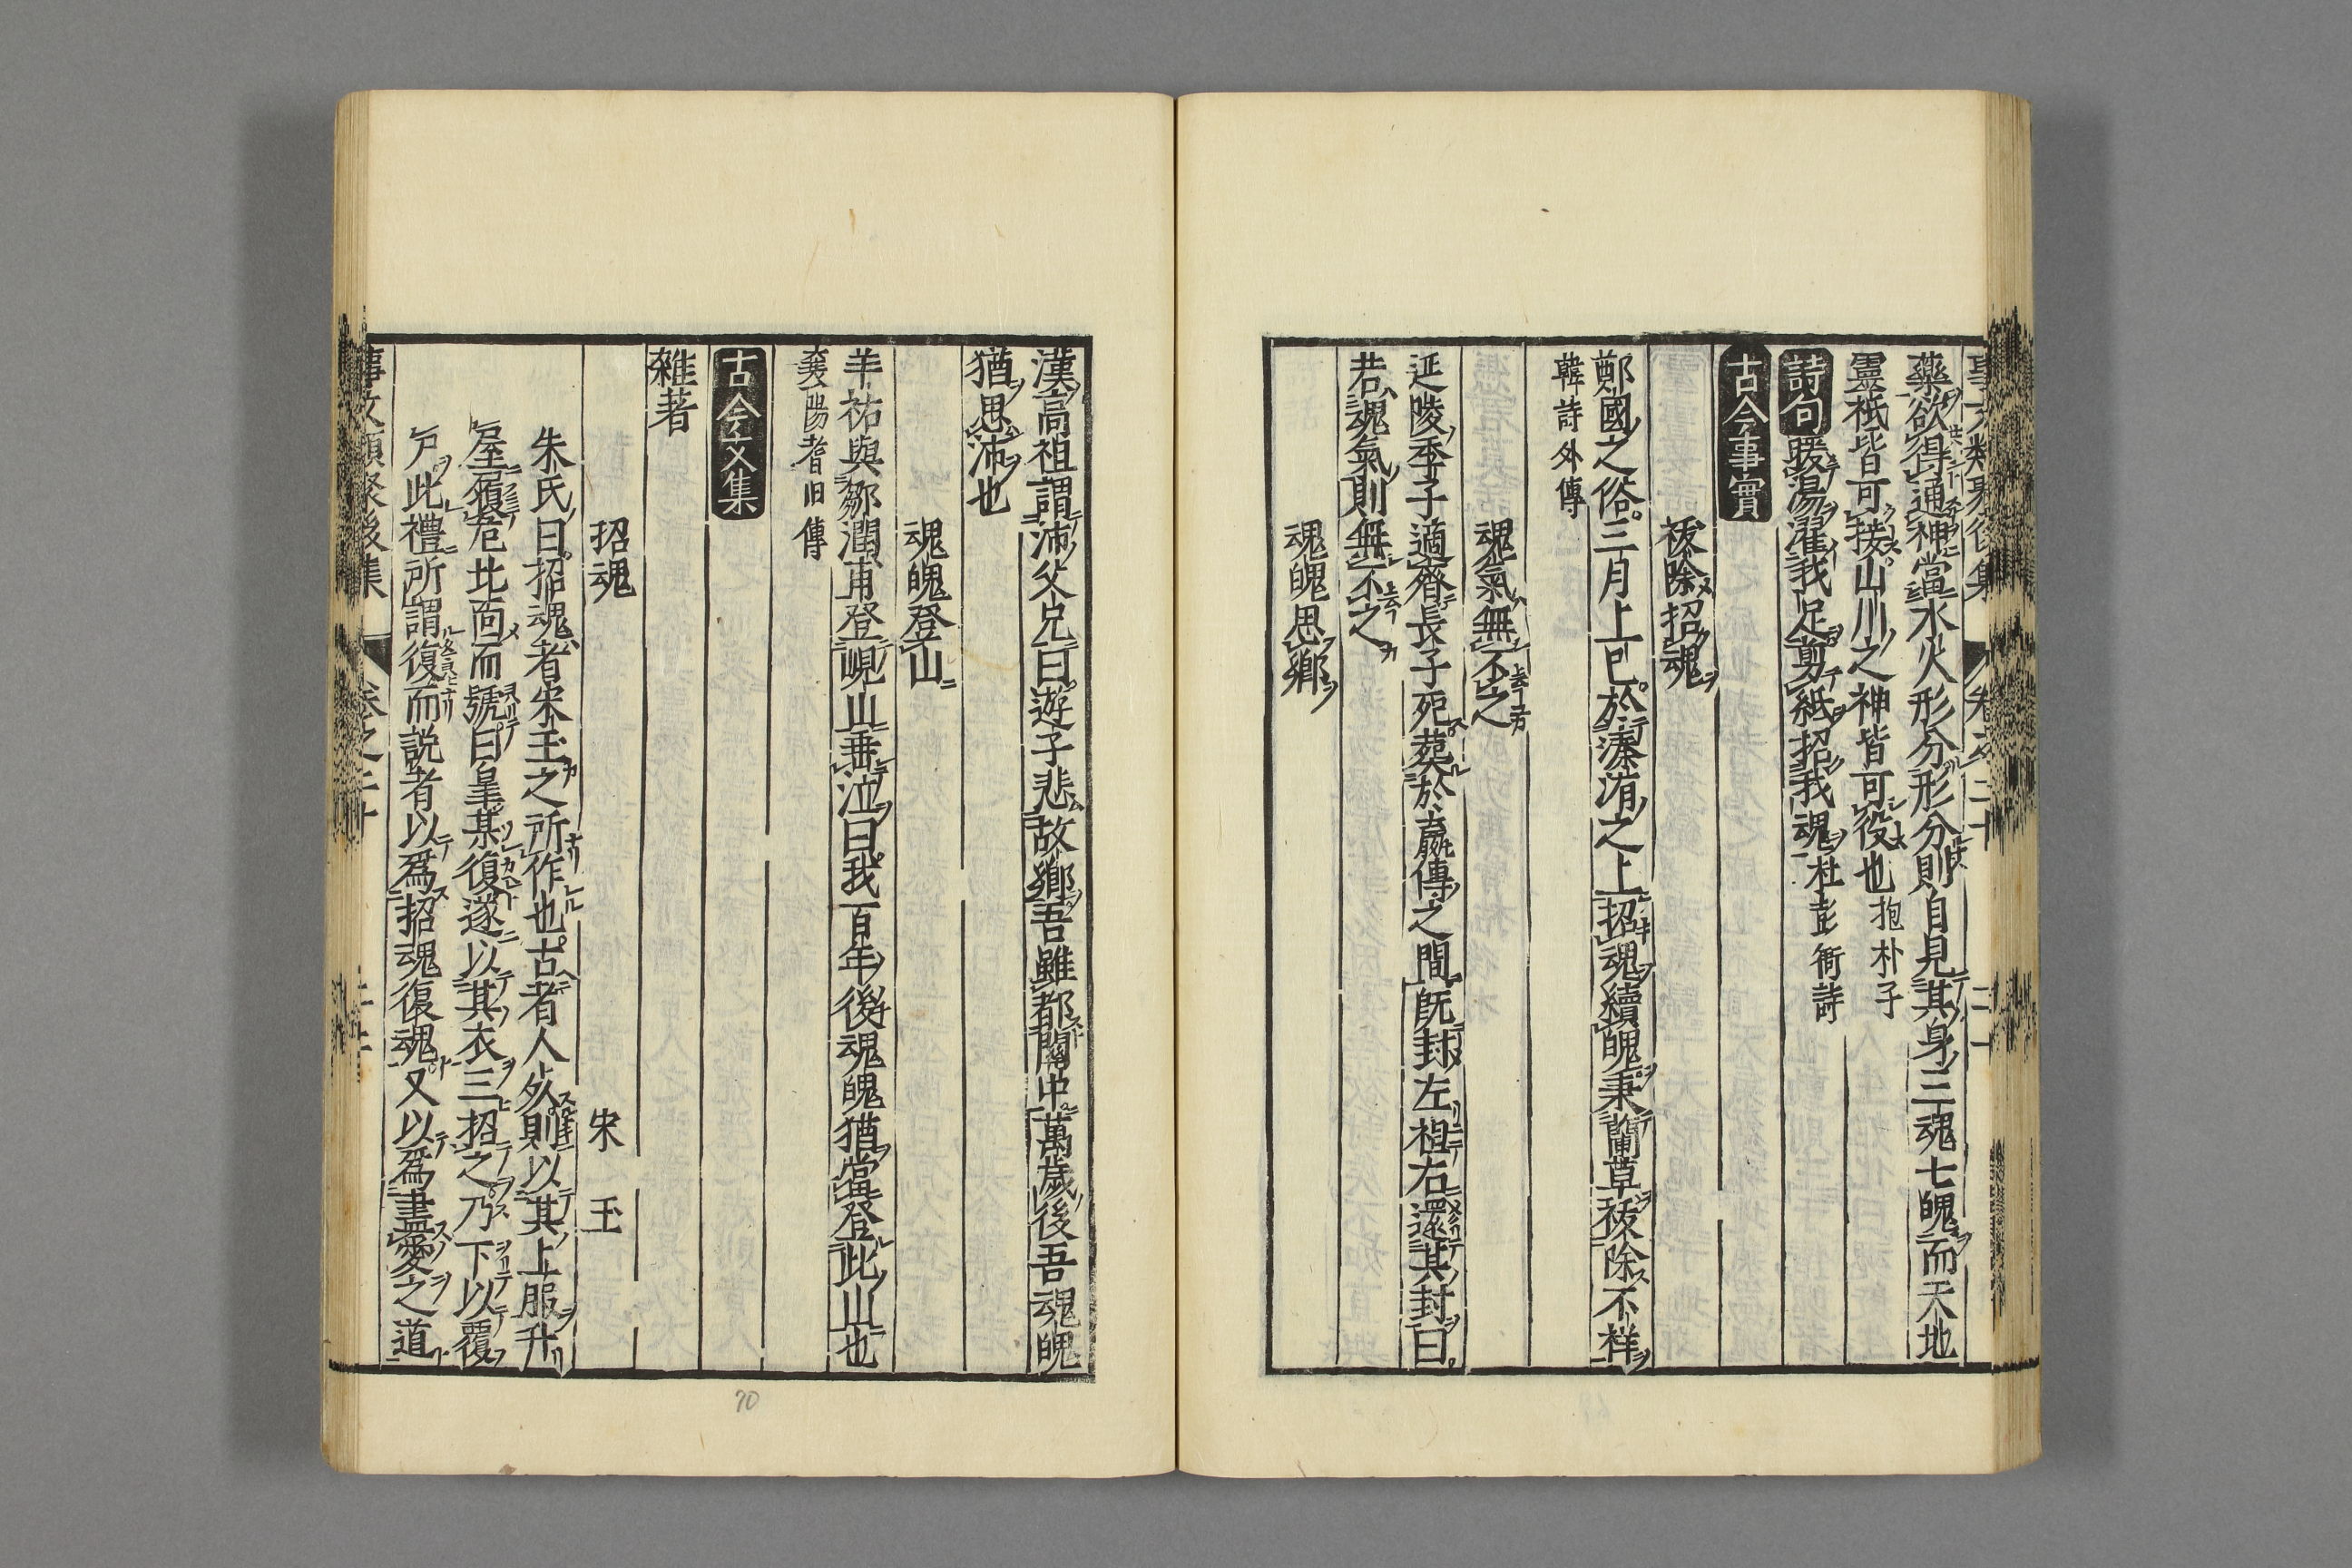 藥欲得通神當水火形分形分則自見其身三魂七魄而天地
靈祇皆可接山川之神皆可役也 抱朴子
詩句 暖湯濯我足剪紙招我魂 杜彭衙詩
古今事實
祓除招魂
鄭國之俗三月上巳於溱洧之上招魂續魄秉蘭草祓除不祥
韓詩外傳
魂氣無不之
延陵季子適齊長子死葬於嬴博之間既封左袒右還其封曰
若魂氣則無不之
魂魄思鄉
漢高祖謂沛父兄曰遊子悲故鄉吾雖都關中萬歲後吾魂魄
猶思沛也
魂魄登山
羊祜與鄒潤甫登峴山垂泣曰我百年後魂魄猶當登此山也
襄陽耆旧傳
古今文集
雜著
招魂 宋玉
朱氏曰招魂者宋玉之所作也古者人死則以其上服升
屋履危北面而號曰皐某復遂以其衣三招之乃下以覆
尸此禮所謂復而說者以爲招魂復魂又以爲盡愛之道
事文類聚後集 卷之二十